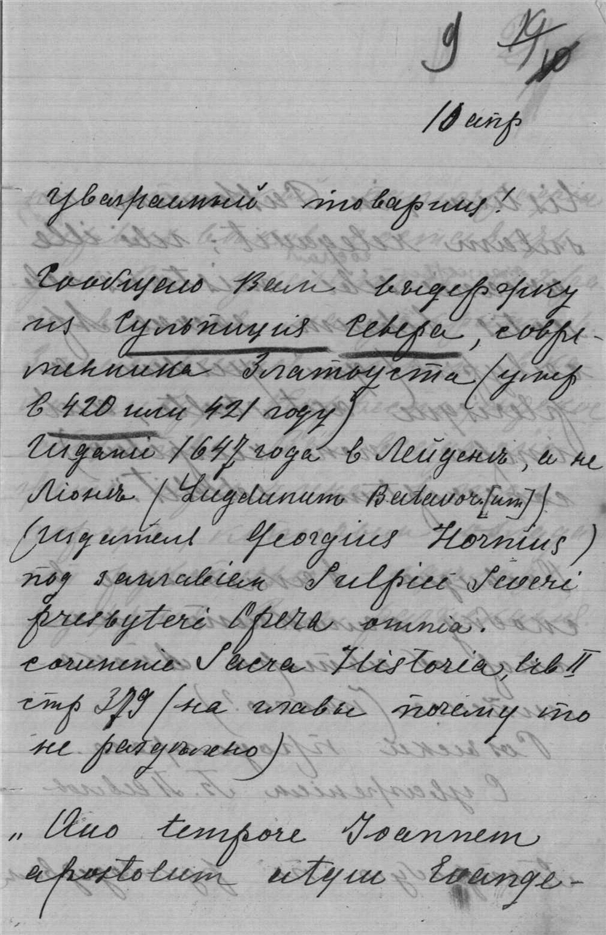 9 19/10
10 апр
Уважаемый товарищ!
Сообщаю Вам выдержку
из Сульпиция Севера, совре-
менника Златоуста (умер
в 420 или 421 году)
Издание 1647 года в Лейдене, а не
Лионе (Lugdunum Batavor[um])
(издатель Georgius Hornius)
под заглавием Sulpicii Severi
presbyteri Opera omnia.
сочинение Sacra Historia, lib II
стр 379 (на главы почему то
не разделено)
„Quo tempore Joannem
apostolum atque Evange-